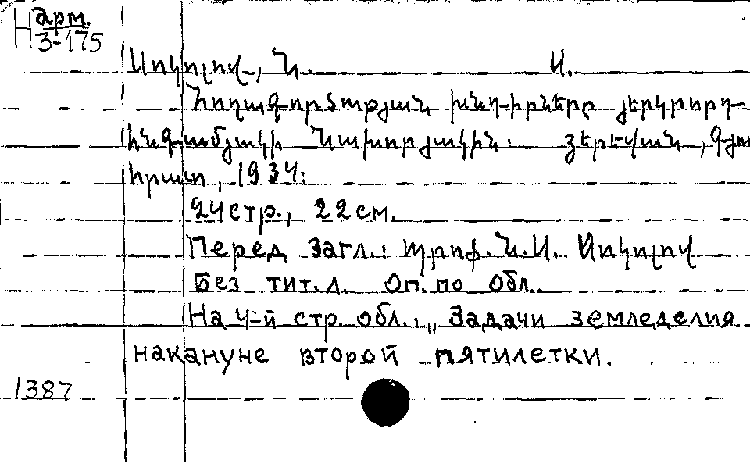 Н арм.
3-175
Սոկոլով, Ն. Ս.
Հողագործության խնդիրները յերկրորդ
հնգամյակի նախորյակին. Յերեվան, Գյու
հրատ, 1934.
24 стр., 22 см.
Перед загл.: պրոֆ. Ն. Ս. Սոկոլով
Без тит. л. Оп. по обл.
На 4-й стр. обл.: „Задачи земледелия
накануне второй пятилетки.
1387